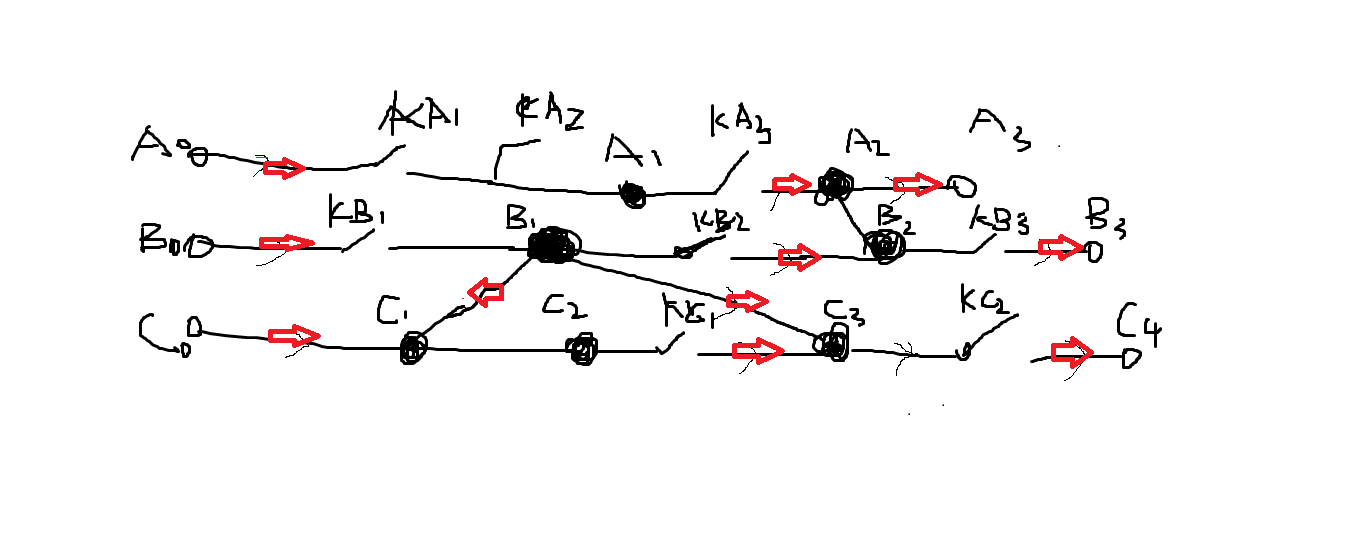 A0 KA1 KA2 A1 KA3 A2 A3
B0 KB1 B1 KB2 B2 KB3 B3
C0 C1 C2 KC1 C3 KC2 C4